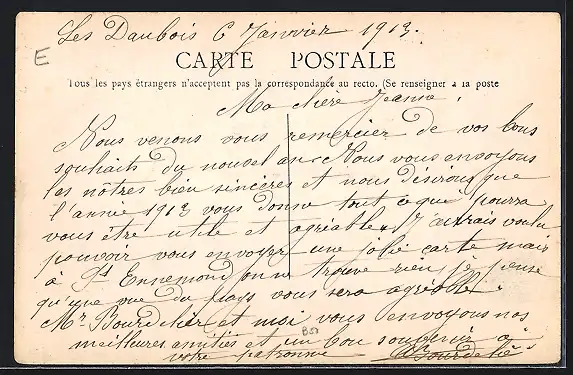 Les Daubois 6 Janvier 1913.
E
CARTE POSTALE
Tous les pays étrangers n'acceptent pas la correspondance au recto. (Se renseigner à la poste
Ma chère Jeanne,
Nous venons vous remercier de vos bons
souhaits du nouvel an. Nous vous envoyons
les nôtres bien sincères et nous désirons que
l'année 1913 vous donne tout ce qui pourra
vous être utile et agréable. J'aurais voulu
pouvoir vous envoyer une jolie carte mais
à St Ennemond on ne trouve rien, je pense
qu'une vue du pays vous sera agréable.
Mr Bourdelier et moi vous envoyons nos
meilleures amitiés et un bon souvenir à
votre patronne